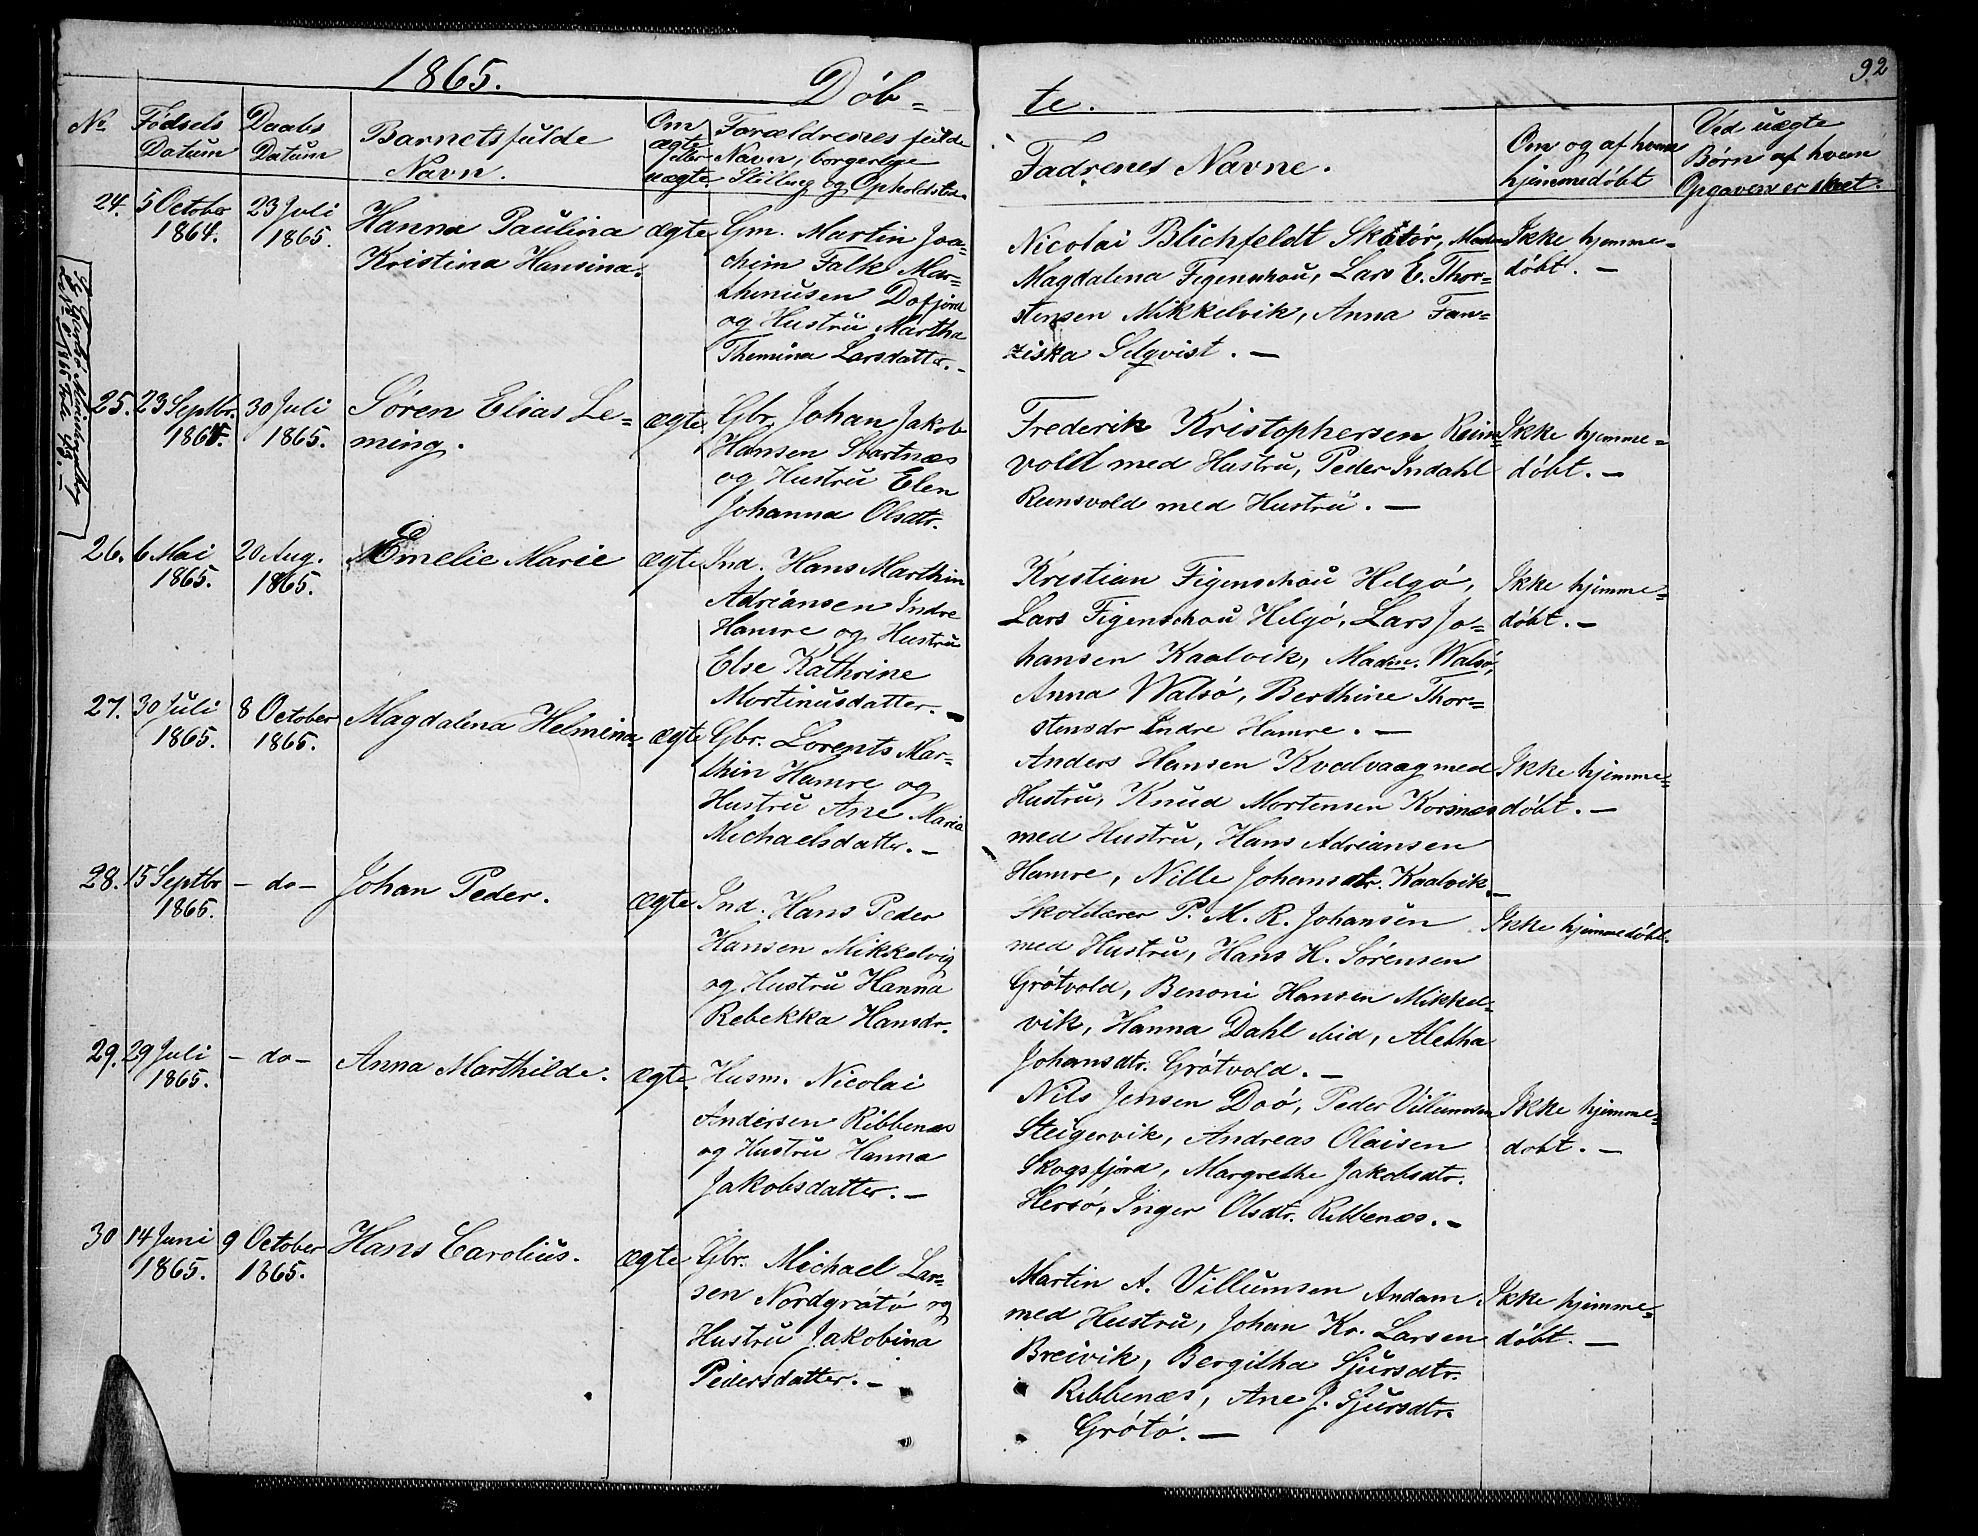 1865.
Döb=
te.
92
No
Födsels
Datum
Daabs
Datum
Barnets fulde
Navn.
Om
ægte
eller
uægte.
Forældrenes fulde
Navn, borgerlige
Stilling og Opholdsted.
Fadrenes Navne.
Om og af hvem
hjemmedöbt
Ved uægte
Børn af hvem
Opgaven er skeet.
24.
5 October
1864.
23 Juli
1865.
Hanna Paulina
Kristina Hansina.
ægte
Gm. Martin Joa=
chim Falk Mar=
thinusen Dafjord
og Hustru Martha
Themina Larsdatter. -
Nicolai Blichfeldt Skåtör, Madm
Magdalena Figenschou, Lars E. Thor=
stensen Mikkelvik, Anna Fan=
ziska Selqvist. -
Ikke hjemme=
döbt. -
25.
23 Septbr.
1864.
30 Juli
1865.
Søren Elias Le=
ming.
ægte.
Gbr. Johan Jakob
Hansen Svartnæs
og Hustru Elen
Johanna Olsdtr.
Frederik Kristophersen Reins
vold med Hustru, Peder Indahl
Reinsvold med Hustru. -
Ikke hjemme=
döbt. -
26.
6 Mai
1865.
20 Aug.
1865.
Emelie Marie
ægte
Ind. Hans Marthin
Adriansen Indre
Hamre og Hustru
Else Kathrine
Mortinusdatter. -
Kristian Figenschou Helgö,
Lars Figenschou Helgö, Lars Jo=
hansen Kaalvik, Madm. Walsö,
Anna Walsö, Berthine Thor=
stensdr Indre Hamre. -
Ikke hjemme=
döbt. -
27.
30 Juli
1865.
8 October
1865.
Magdalena Helmina
ægte
Gbr. Lorents Mar=
thin Hamre og
Hustru Ane Maria
Michaelsdatter. -
Anders Hansen Kvalvaag med
Hustru, Knud Mortensen Kornnæs
med Hustru, Hans Adriansen
Hamre, Nille Johansdtr. Kaalvik. -
Ikke hjemme=
döbt. -
28.
15 Septbr
1865.
- do -
Johan Peder.
ægte
Ind. Hans Peder
Hansen Mikkelvig
og Hustru Hanna
Rebekka Hansdr.
Skolelærer P. M. R. Johansen
med Hustru, Hans H. Sørensen
Grötvold, Benoni Hansen Mikkel=
vik, Hanna Dahl ibid, Aletha
Johansdtr. Grötvold. -
Ikke hjemmedöbt.
29.
29 Juli
1865.
- do -
Anna Marthilde.
ægte.
Husm. Nicolai
Andersen Ribbenæs
og Hustru Hanna
Jakobsdatter. -
Nils Jensen Doö, Peder Villumsen
Steigervik, Andreas Olaisen
Skogsfjord, Margrethe Jakobsdtr.
Hersö, Inger Olsdtr. Ribbenæs. -
Ikke hjemme=
dobt. -
30
14 Juni
1865.
9 October
1865.
Hans Carolius.
ægte
Gbr. Michael Lar=
sen Nordgrötö og
Hustru Jakobina
Pedersdatter. -
Martin A. Villumsen Andam
med Hustru, Johan Kr. Larsen
Breivik, Bergitha Sjursdtr.
Ribbenæs, Ane J. Sjursdtr.
Grötö. -
Ikke hjemme=
döbt. -